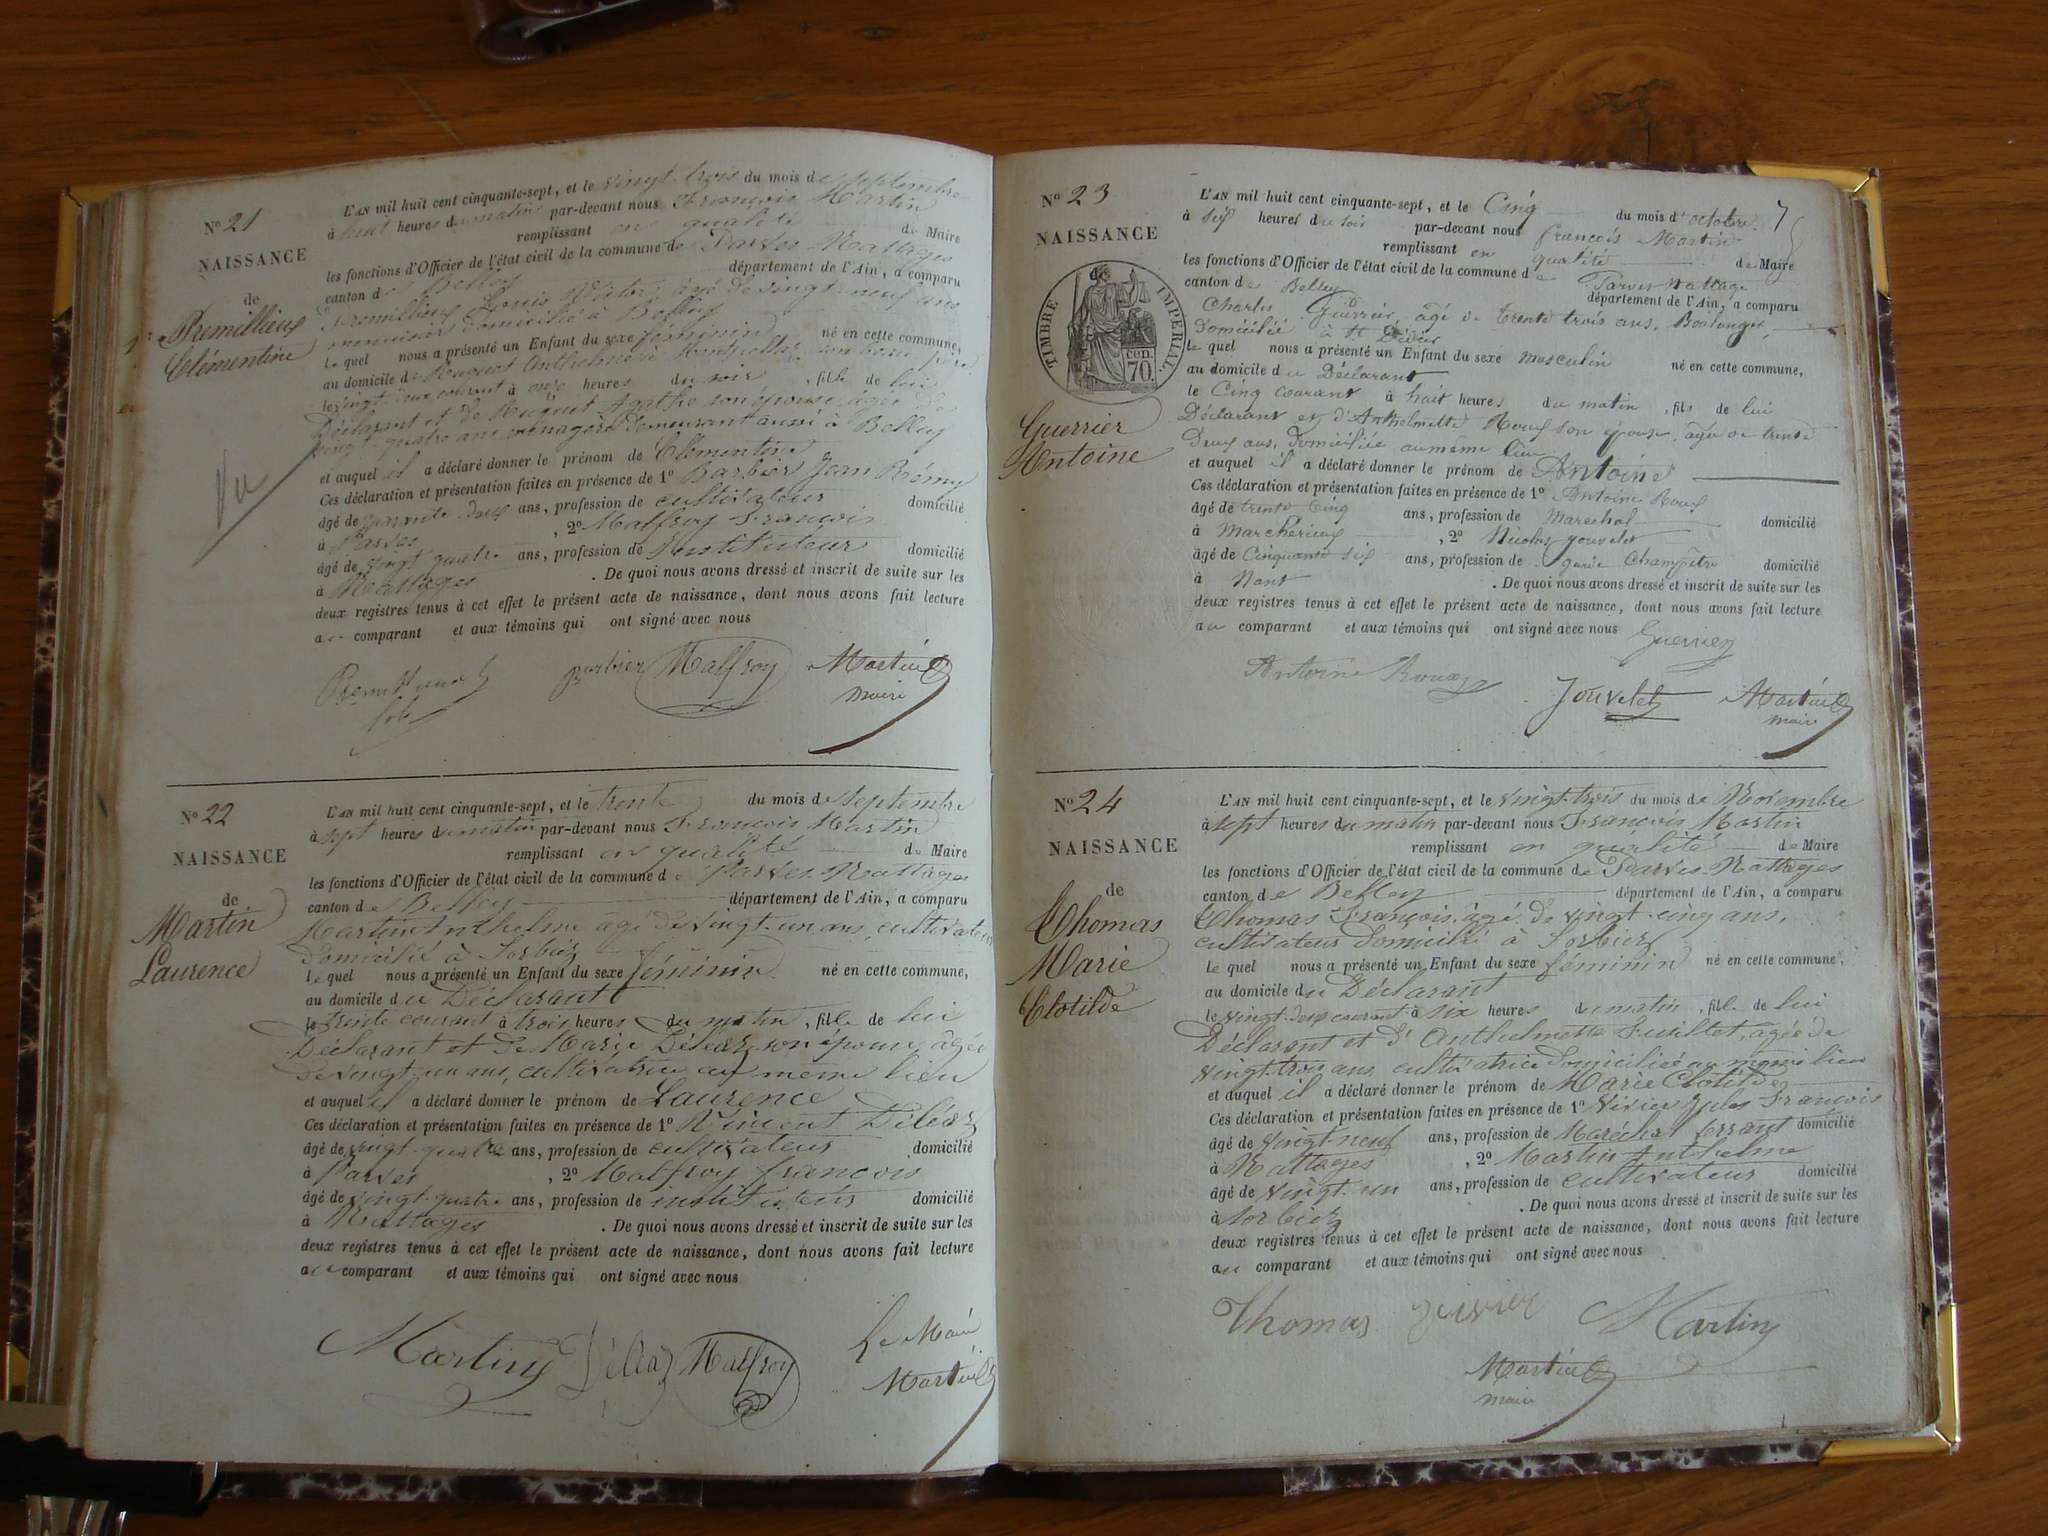 No 21
NAISSANCE
de
Premillieux
Clémentine
Vu
L'AN mil huit cent cinquante-sept, et le vingt-trois du mois de septembre
à huit heures du matin par-devant nous François Martin
remplissant en qualité de Maire
les fonctions d'Officier de l'état civil de la commune de Parves Nattages
canton de Belley département de l'Ain, a comparu
Premillieux Louis Victor, âgé de vingt-neuf ans
menuisier domicilié à Belley
le quel nous a présenté un Enfant du sexe féminin né en cette commune,
au domicile de Anthelme à
le vingt deux courant à onze heures du soir, fille de lui
Déclarant et de Agathe son épouse, âgée de
vingt-quatre ans ménagère demeurant aussi à Belley
et auquel il a déclaré donner le prénom de Clémentine
Ces déclaration et présentation faites en présence de 1º Barbier Jean Rémy
âgé de quarante deux ans, profession de cultivateur domicilié
à Parves, 2º Malfroy François
âgé de vingt quatre ans, profession de Instituteur domicilié
à Nattages. De quoi nous avons dressé et inscrit de suite sur les
deux registres tenus à cet effet le présent acte de naissance, dont nous avons fait lecture
au comparant et aux témoins qui ont signé avec nous
Barbier Malfroy Martin
maire
No 22
NAISSANCE
de
Martin
Laurence
L'AN mil huit cent cinquante-sept, et le trente du mois de septembre
à sept heures du matin par-devant nous François Martin
remplissant en qualité de Maire
les fonctions d'Officier de l'état civil de la commune de Parves Nattages
canton de Belley département de l'Ain, a comparu
Martin Anthelme âgé de vingt-un ans, cultivateur
domicilié à Sorbier
le quel nous a présenté un Enfant du sexe féminin né en cette commune,
au domicile du Déclarant
le trente courant à trois heures du matin, fille de lui
Déclarant et de Marie son épouse, âgée
de vingt-un ans, cultivatrice au même lieu
et auquel il a déclaré donner le prénom de Laurence
Ces déclaration et présentation faites en présence de 1º Vincent
âgé de vingt-quatre ans, profession de cultivateur domicilié
à Parves, 2º Malfroy françois
âgé de vingt-quatre ans, profession de instituteur domicilié
à Nattages. De quoi nous avons dressé et inscrit de suite sur les
deux registres tenus à cet effet le présent acte de naissance, dont nous avons fait lecture
au comparant et aux témoins qui ont signé avec nous
Martin Malfroy Le Maire
Martin
No 23
NAISSANCE
TIMBRE IMPÉRIAL
cen.
70.
Guerrier
Antoine
7
L'AN mil huit cent cinquante-sept, et le Cinq du mois d'octobre
à six heures du soir par-devant nous françois Martin
remplissant en qualité de Maire
les fonctions d'Officier de l'état civil de la commune de Parves Nattage
canton de Belley département de l'Ain, a comparu
Charles Guerrier, âgé de trente trois ans, Boulanger,
domicilié à St Didier
le quel nous a présenté un Enfant du sexe masculin né en cette commune,
au domicile du Déclarant
le Cinq courant à huit heures du matin, fils de lui
Déclarant et d'Anthelmette Roux son épouse, âgée de trente
Deux ans, domiciliée au même lieu
et auquel il a déclaré donner le prénom de Antoine
Ces déclaration et présentation faites en présence de 1º Antoine Roux
âgé de trente Cinq ans, profession de Marechal domicilié
à Marchérieux, 2º Nicolas Jouvelet
âgé de Cinquante six ans, profession de garde Champêtre domicilié
à Nant. De quoi nous avons dressé et inscrit de suite sur les
deux registres tenus à cet effet le présent acte de naissance, dont nous avons fait lecture
au comparant et aux témoins qui ont signé avec nous Guerrier
Antoine Roux
Jouvelet Martin
maire
No 24
NAISSANCE
de
Thomas
Marie
Clotilde
L'AN mil huit cent cinquante-sept, et le vingt-trois du mois de Novembre
à sept heures du matin par-devant nous François Martin
remplissant en qualité de Maire
les fonctions d'Officier de l'état civil de la commune de Parves Nattages
canton de Belley département de l'Ain, a comparu
Thomas François, âgé de vingt-cinq ans,
cultivateur domicilié à Sorbier
le quel nous a présenté un Enfant du sexe féminin né en cette commune,
au domicile du Déclarant
le vingt-deux courant à six heures du matin, fille de lui
Déclarant et d'Anthelmette, âgée de
vingt-trois ans, cultivatrice domiciliée au même lieu
et auquel il a déclaré donner le prénom de Marie Clotilde
Ces déclaration et présentation faites en présence de 1º Vivier Jules François
âgé de vingt neuf ans, profession de Maréchal ferrant domicilié
à Nattages, 2º Martin Anthelme
âgé de vingt-un ans, profession de cultivateur domicilié
à Sorbier. De quoi nous avons dressé et inscrit de suite sur les
deux registres tenus à cet effet le présent acte de naissance, dont nous avons fait lecture
au comparant et aux témoins qui ont signé avec nous
Thomas Vivier Martin
Martin
maire